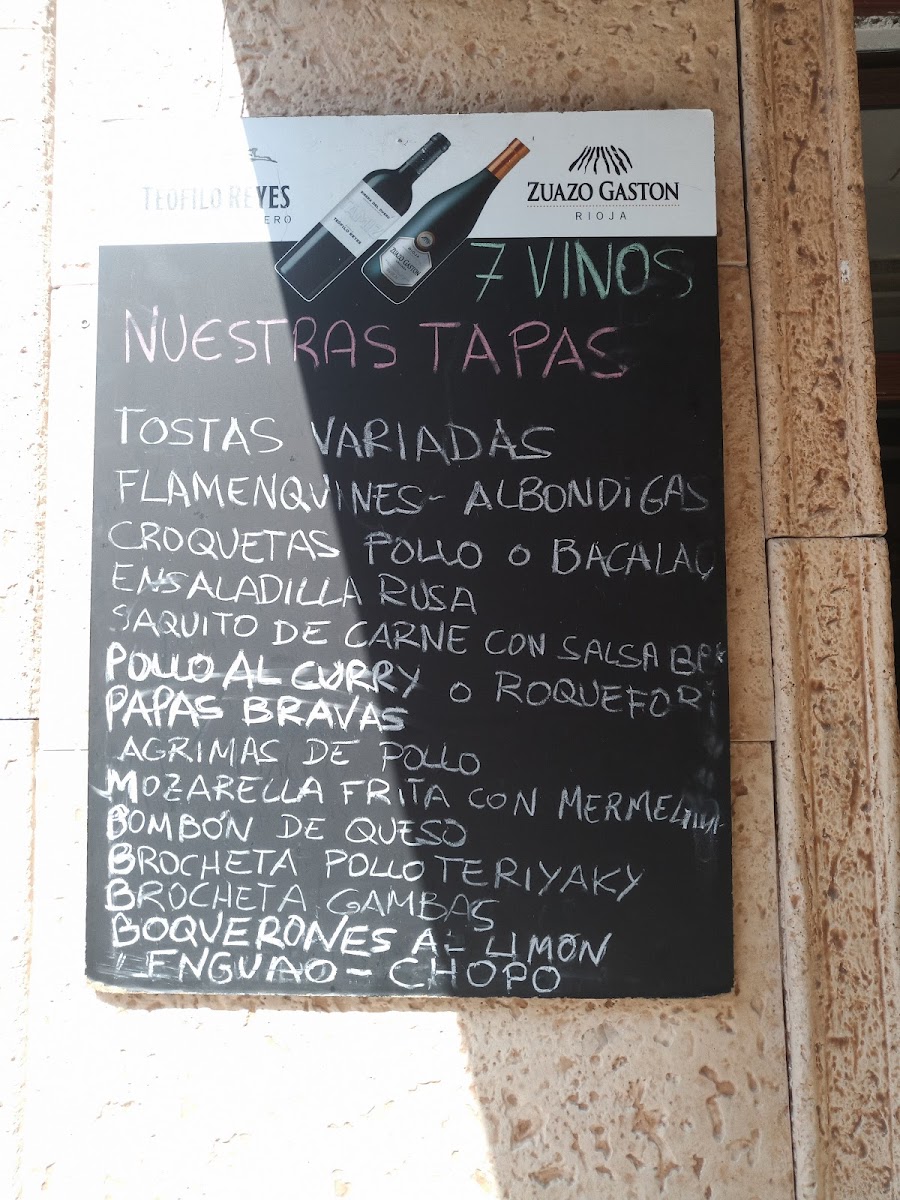 TEOFILO REYES
ERO
TEOFILO REYES
ZUAZO GASTON
ZUAZO GASTON
RIOJA
7 VINOS
NUESTRAS TAPAS
TOSTAS VARIADAS
FLAMENQUINES - ALBONDIGAS
CROQUETAS POLLO O BACALAO
ENSALADILLA RUSA
SAQUITO DE CARNE CON SALSA
POLLO AL CURRY O ROQUEFORT
PAPAS BRAVAS
AGRIMAS DE POLLO
MOZARELLA FRITA CON
BOMBÓN DE QUESO
BROCHETA POLLO TERIYAKY
BROCHETA GAMBAS
BOQUERONES AL LIMÓN
LENGUAO - CHOPO